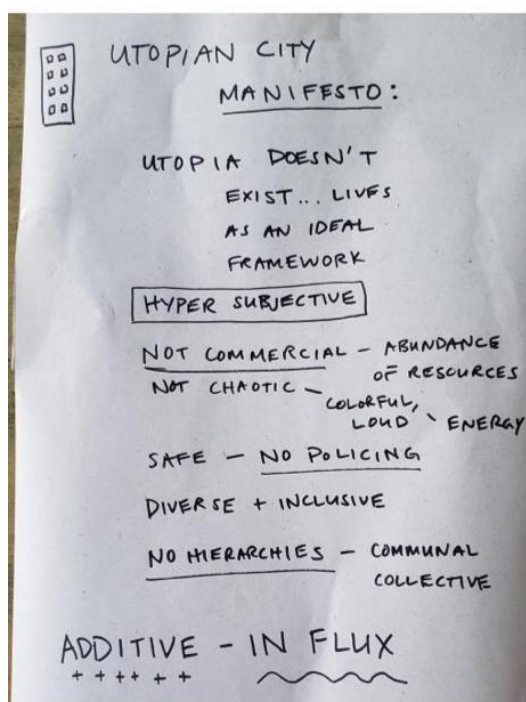 UTOPIAN CITY
MANIFESTO:
UTOPIA DOESN'T
EXIST... LIVES
AS AN IDEAL
FRAMEWORK
HYPER SUBJECTIVE
NOT COMMERCIAL - ABUNDANCE
OF RESOURCES
NOT CHAOTIC - COLORFUL,
LOUD ENERGY
SAFE - NO POLICING
DIVERSE + INCLUSIVE
NO HIERARCHIES - COMMUNAL
COLLECTIVE
ADDITIVE - IN FLUX
+ + + + + +